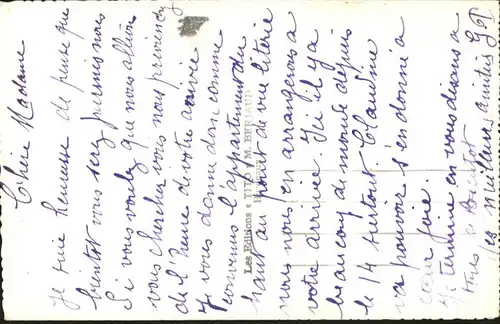 Chère Madame
Je suis heureuse de penser que
bientôt vous serez parmis nous
Si vous voulez que nous allions
vous chercher vous nous préviendrez
de l'heure de votre arrivée
Je vous donne donc comme
convenus l'appartement du
haut au point de vue literie
nous nous en arrangerons a
votre arrivée. Ici il y a
beaucoup de monde depuis
le 14 surtout Claudine
va pouvoir s'en donné a
cœur joie.
Je termine en vous disant a
tous a Bientôt
Mes meilleures amitiés
Les Editions « TITO » M. BERJAUD